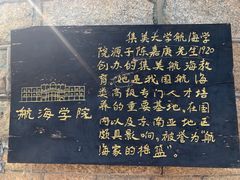 集美大学航海学
院源于陈嘉庚先生1920
创办的集美航海教
育,她是我国航海
类高级专门人才培
养的重要基地,在国
内以及东南亚地区
颇具影响,被誉为“航
海家的摇篮”。
航海学院